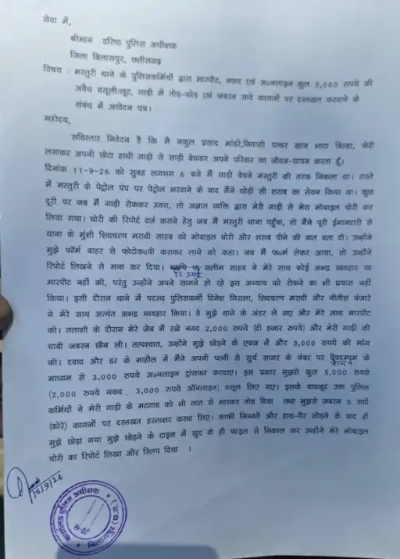 सेवा में,
श्रीमान वरिष्ठ पुलिस अधीक्षक
जिला बिलासपुर, छत्तीसगढ़
विषय : मस्तुरी थाने के पुलिसकर्मियों द्वारा मारपीट, नकद एवं अॉनलाइन कुल 5,000 रुपये की
अवैध वसूली/लूट, गाड़ी में तोड़-फोड़ एवं जबरन सादे कागजों पर दस्तखत करवाने के
संबंध में आवेदन पत्र।
महोदय,
सविस्तार निवेदन है कि मै नकुल प्रसाद मांडरे,निवासी पाचर खान भाटा बिल्हा, फेरी
लगाकर अपनी छोटा हाथी गाड़ी से साड़ी बेचकर अपने परिवार का जीवन-यापन करता हूँ।
दिनांक 11-9-26 को सुबह लगभग 6 बजे मैं साड़ी बेचने मस्तुरी की तरफ निकला था। रास्ते
में मस्तुरी के पेट्रोल पंप पर पेट्रोल भरवाने के बाद मैंने थोड़ी सी शराब का सेवन किया था। कुछ
दूरी पर जब मैं गाड़ी रोककर उतरा, तो अज्ञात व्यक्ति द्वारा मेरी गाड़ी से मेरा मोबाइल चोरी कर
लिया गया। चोरी की रिपोर्ट दर्ज कराने हेतु जब मैं मस्तुरी थाना पहुँचा, तो मैंने पूरी ईमानदारी से
थाना के मुंशी शिवचरण मरावी साहब को मोबाइल चोरी और शराब पीने की बात बता दी। उन्होंने
मुझे फॉर्म बाहर से फोटोकॉपी कराकर लाने को कहा। जब मैं फार्म लेकर आया, तो उन्होंने
रिपोर्ट लिखने से मना कर दिया। सतीम साहब ने मेरे साथ कोई अभद्र व्यवहार या
मारपीट नहीं की, परंतु उन्होंने अपने सामने हो रहे इस अन्याय को रोकने का भी प्रयास नहीं
किया। इसी दौरान थाने में पदस्थ पुलिसकर्मी दिनेश निराला, शिवचरण मरावी और नीतीश बंजारे
ने मेरे साथ अत्यंत अभद्र व्यवहार किया। वे मुझे थाने के अंदर ले गए और मेरे साथ मारपीट
की। तलाशी के दौरान मेरे जेब में रखे नगद 2,000 रुपये (दो हजार रुपये) और मेरी गाड़ी की
चाबी जबरन छीन ली। तत्पश्चात, उन्होंने मुझे छोड़ने के एवज में और 3,000 रुपये की मांग
की। दबाव और डर के माहौल में मैंने अपनी पत्नी से के नंबर पर के
माध्यम से 3,000 रुपये अॉनलाइन ट्रांसफर करवाए। इस प्रकार मुझसे कुल 5,000 रुपये
(2,000 रुपये नकद , 3,000 रुपये ऑनलाइन) वसूल लिए गए। इसके बावजूद उक्त पुलिस
कर्मियों ने मेरी गाड़ी के मडगाड को भी लात से मारकर तोड़ दिया तथा मुझसे जबरन 5 सादे
(कोरे) कागजों पर दस्तखत हस्ताक्षर करवा लिए। काफी मिन्नतें और हाथ-पैर जोड़ने के बाद ही
मुझे छोड़ा गया मुझे छोड़ने के टाइम में खुद के ही फाइल से निकाल कर उन्होंने मेरे मोबाइल
चोरी का रिपोर्ट लिखा और स्लिप दिया ।
15/9/26